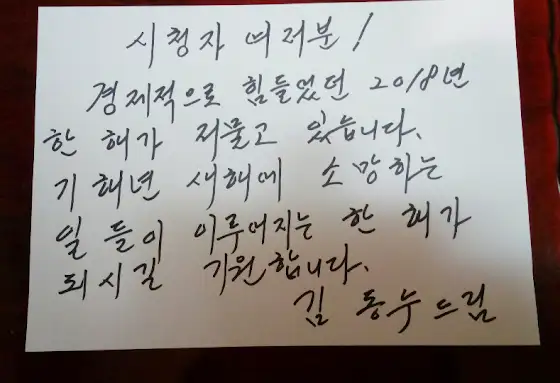 시청자 여러분!
경제적으로 힘들었던 2018년
한 해가 저물고 있습니다.
기해년 새해에 소망하는
일들이 이루어지는 한 해가
되시길 기원합니다.
김동수드림